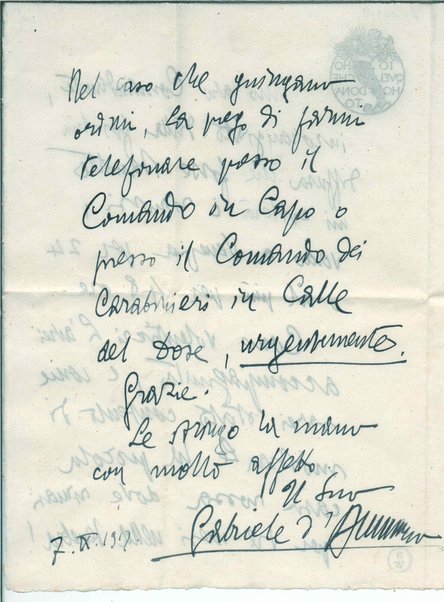 Nel caso che giungano
ordini, La prego di farmi
telefonare presso il
Comando in Capo o
presso il Comando dei
Carabinieri in Calle
del Dose, urgentemente.
Grazie.
Le stringo la mano
con molto affetto.
Il Suo
Gabriele d'Annunzio